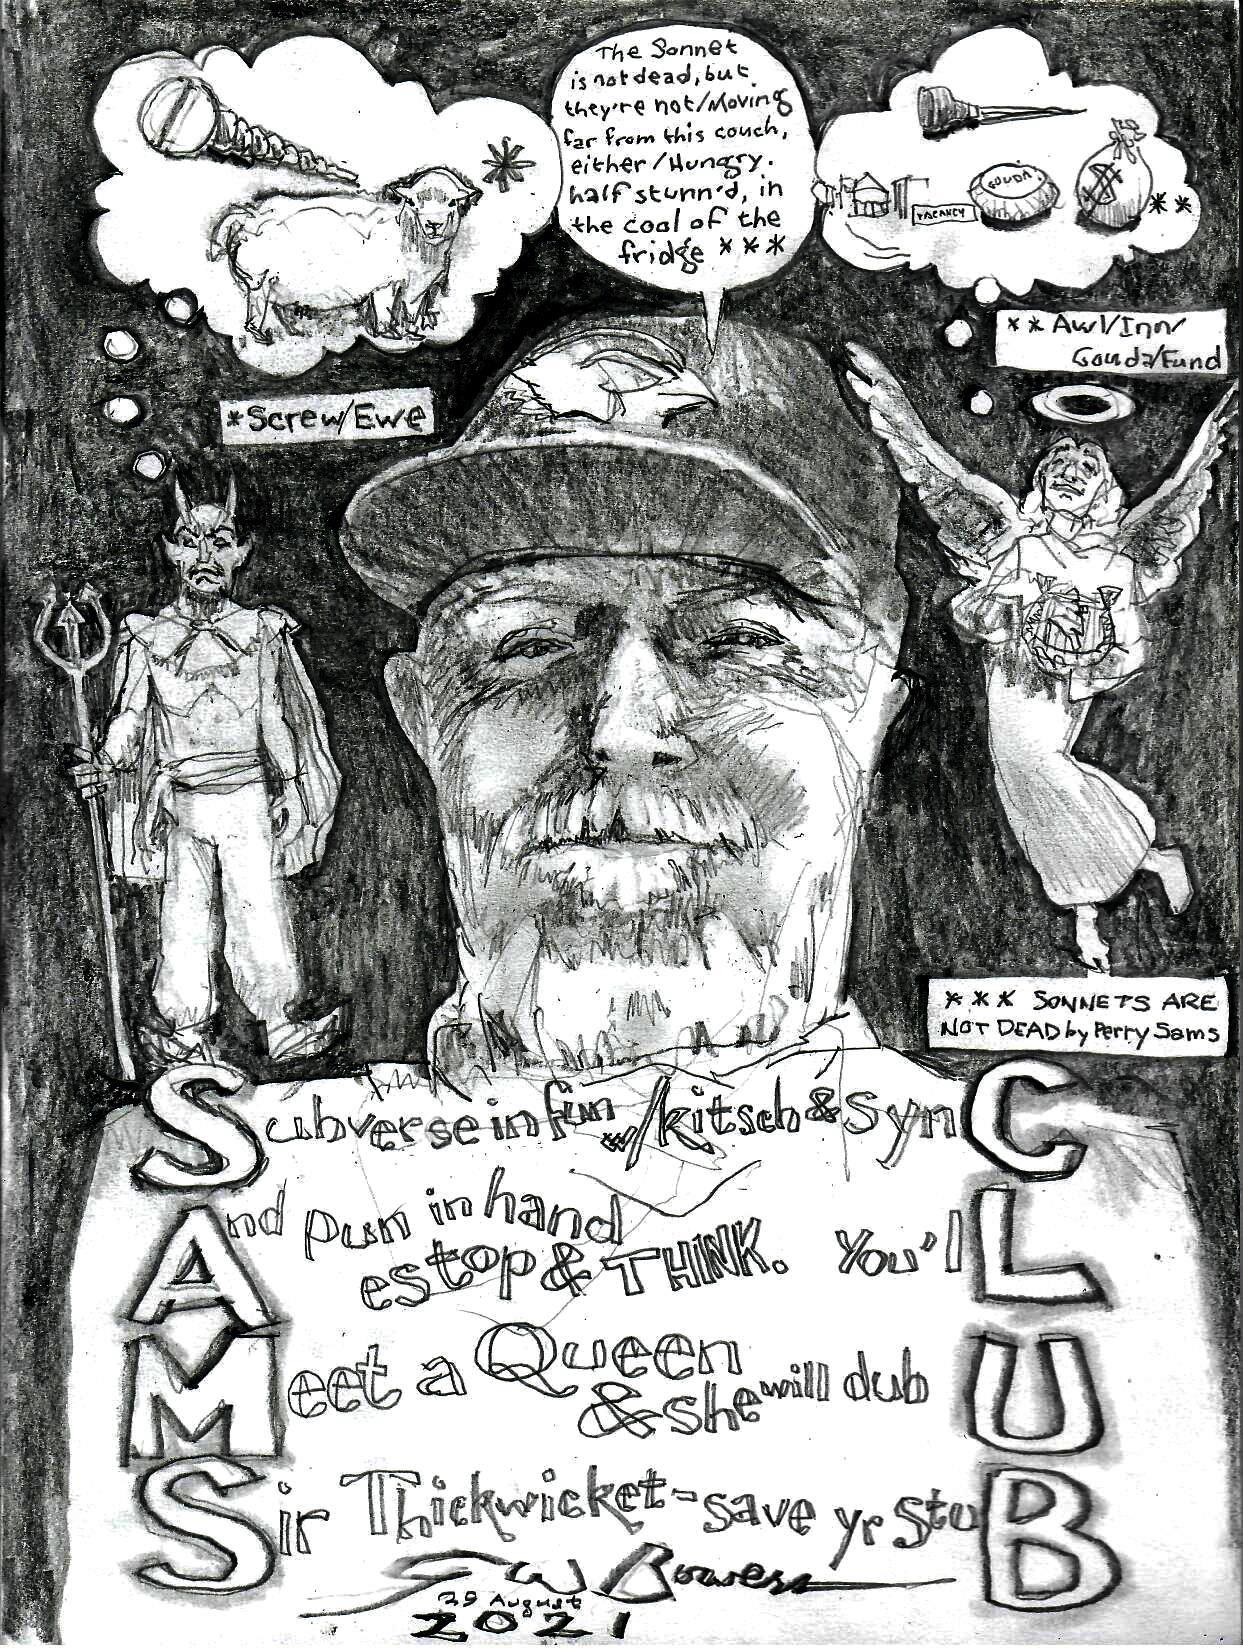 The Sonnet
is not dead, but
they're not/Moving
far from this couch,
either/Hungry.
half stunn'd, in
the cool of the
fridge ***
*
GOUDA
VACANCY
**
** Awl/Inn/
Gouda/Fund
*Screw/Ewe
*** SONNETS ARE
NOT DEAD by Perry Sams
Subverse in fun w/kitsch & SynC
And pun in hand
estop & THINK. You'lL
Meet a Queen
& she will dubU
Sir Thickwicket - save yr stuB
SW Bowers
29 August
2021